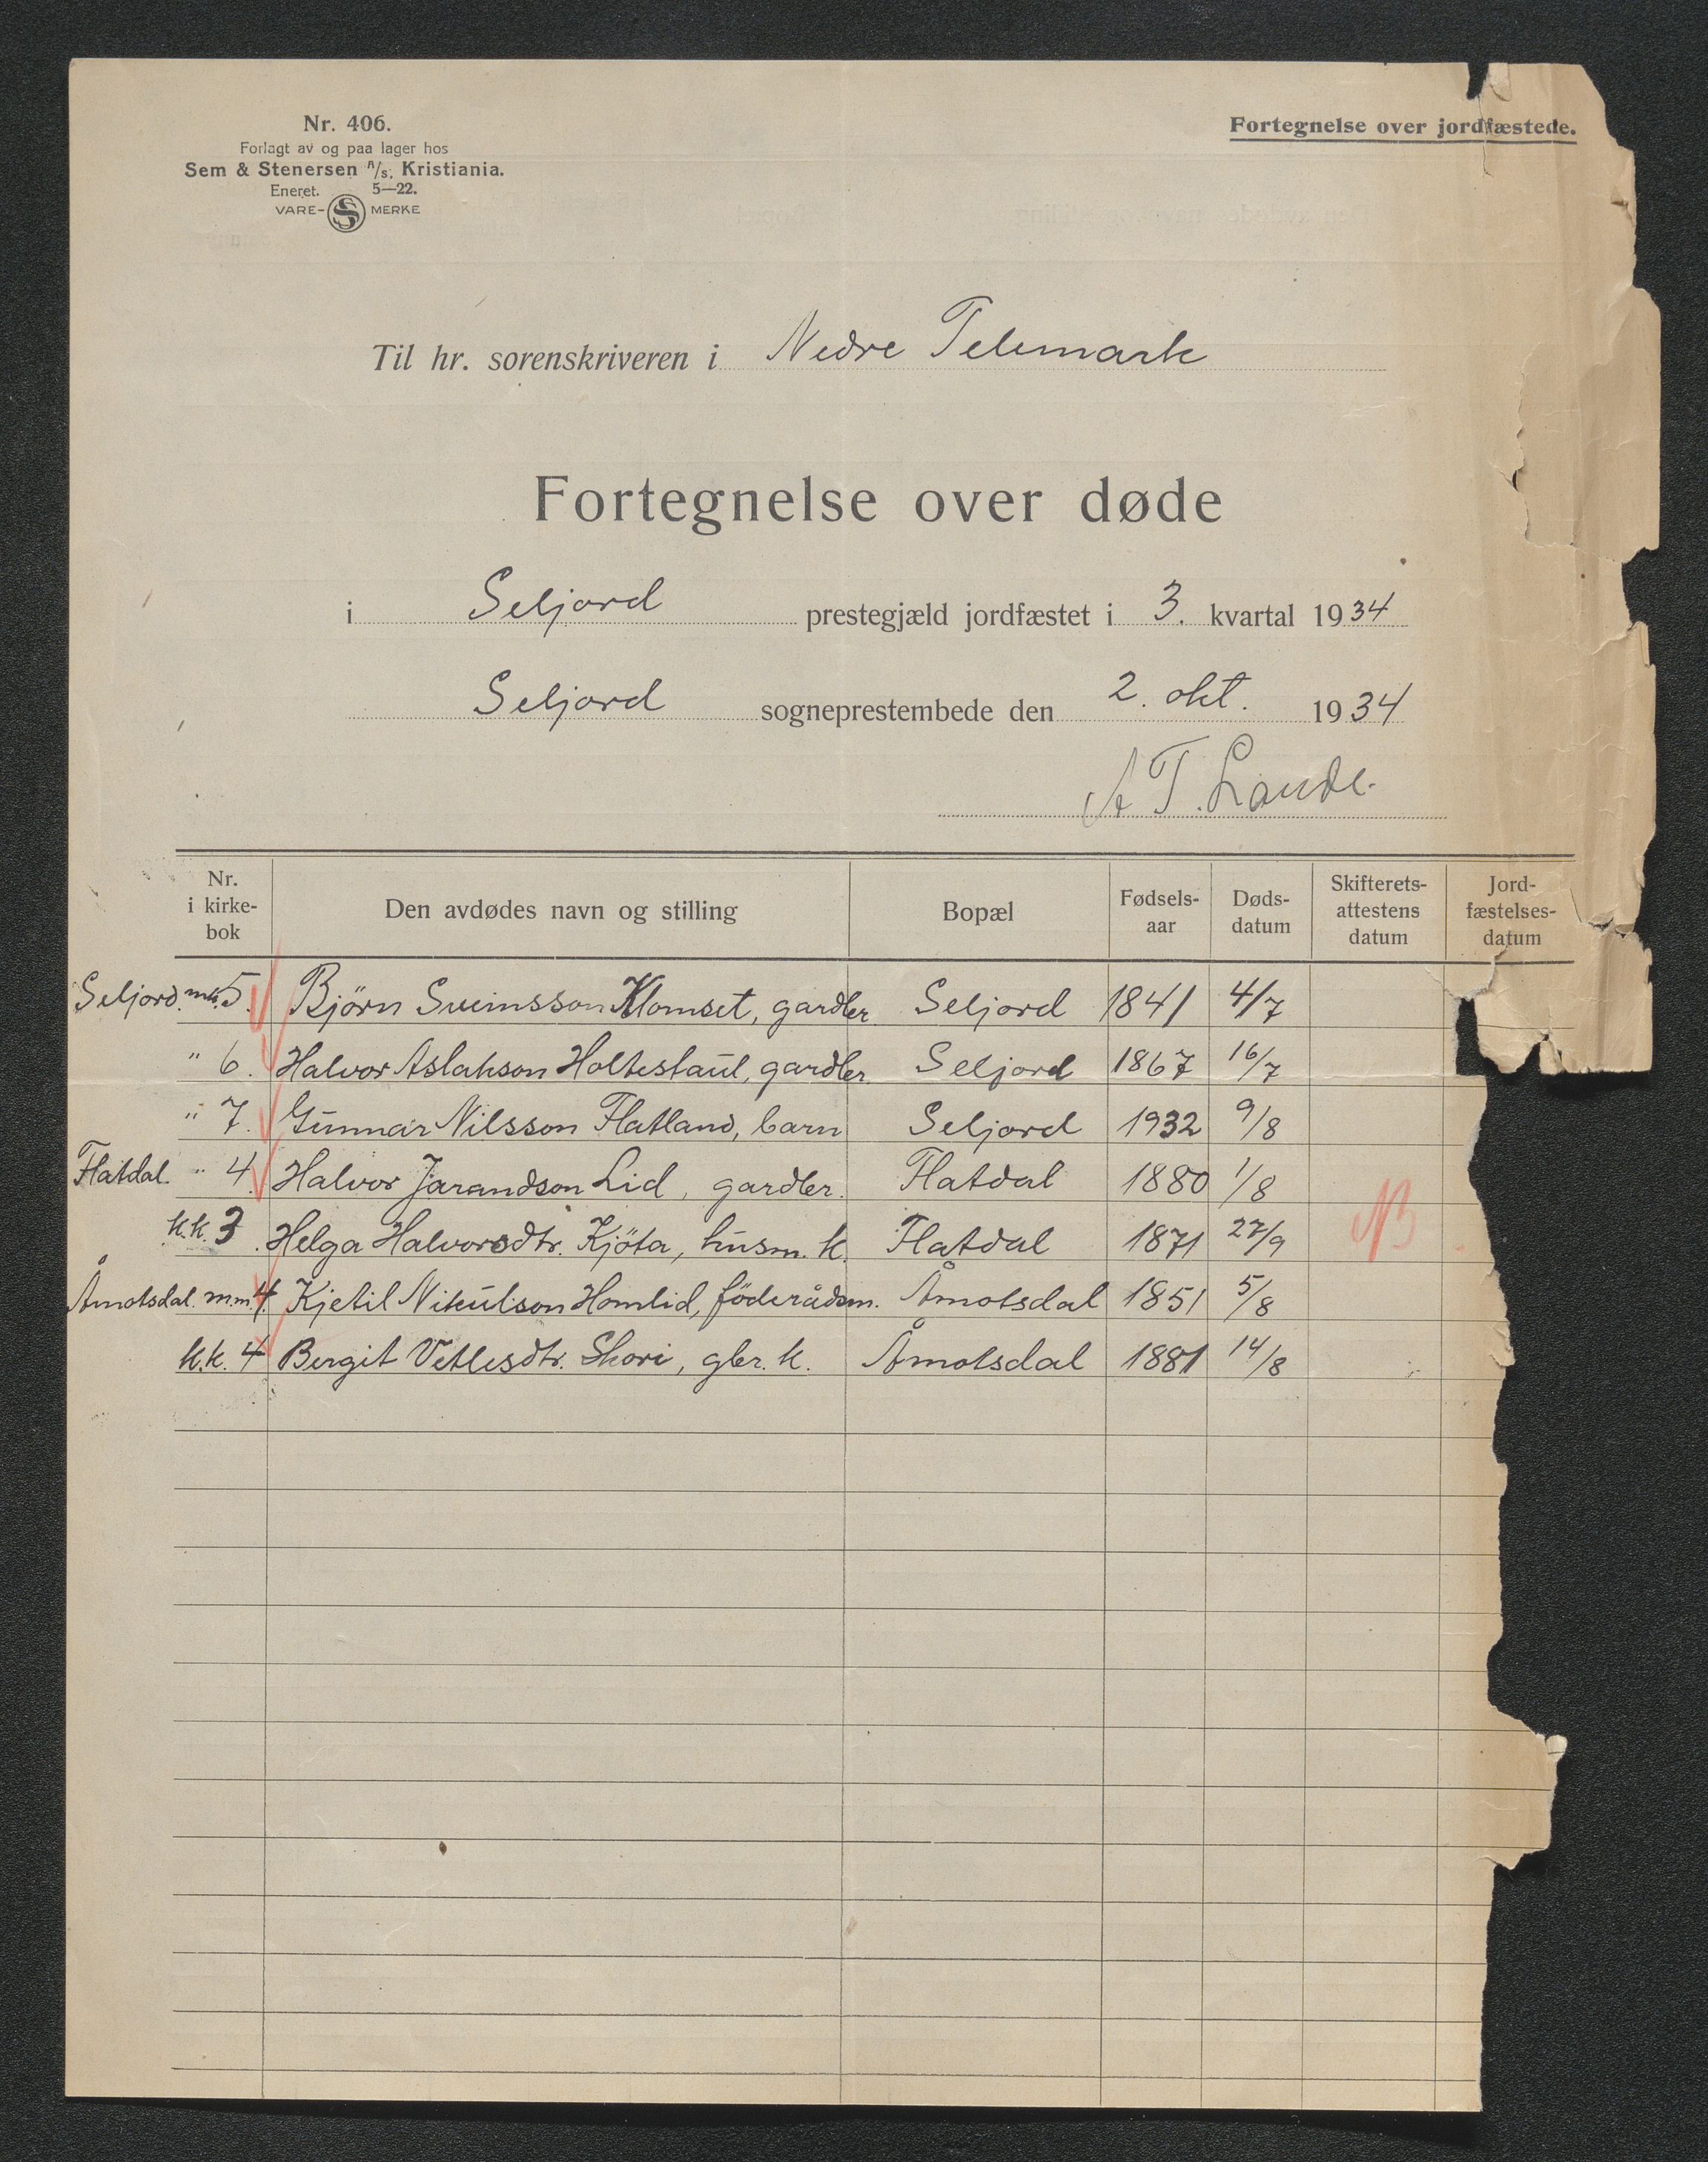 Nr. 406.
Forlagt av og paa lager hos
Sem & Stenersen A/S, Kristiania.
Eneret. 5—22.
VARE- S MERKE
Fortegnelse over jordfæstede.
Til hr. sorenskriveren i Nedre Telemark
Fortegnelse over døde
i Seljord prestegjæld jordfæstet i 3. kvartal 1934
Seljord sogneprestembede den 2. okt. 1934
A T. Lande.
Nr. i kirke-bok | Den avdødes navn og stilling | Bopæl | Fødsels-aar | Døds-datum | Skifterets-attestens datum | Jord-fæstelses-datum
Seljord. mk. 5. Bjørn Sveinsson Klomset, gardbr. Seljord 1841 4/7
" 6. Halvor Aslakson Holtestaul, gardbr. Seljord 1867 16/7
" 7. Gunnar Nilsson Flatland, barn Seljord 1932 9/8
Flatdal. " 4. Halvor Jarandson Lid, gardbr. Flatdal 1880 1/8
k.k. 3. Helga Halvorsdtr. Kjöta, husm. k. Flatdal 1871 27/9 NB
Åmotsdal. m.m. 4. Kjetil Nikulson Homlid, föderådsm. Åmotsdal 1851 5/8
k.k. 4 Bergit Vetlesdtr. Skori, gbr. k. Åmotsdal 1881 14/8